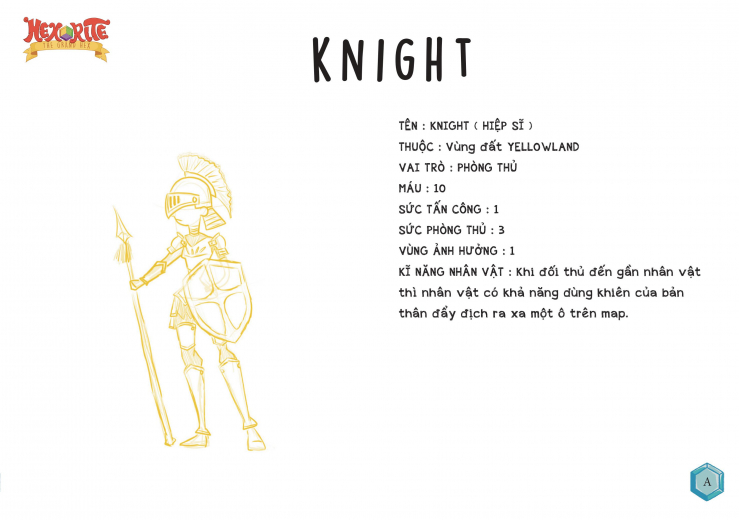 HEXORITE
THE GRAND HEX
KNIGHT
TÊN : KNIGHT ( HIỆP SĨ )
THUỘC : Vùng đất YELLOWLAND
VAI TRÒ : PHÒNG THỦ
MÁU : 10
SỨC TẤN CÔNG : 1
SỨC PHÒNG THỦ : 3
VÙNG ẢNH HƯỞNG : 1
KĨ NĂNG NHÂN VẬT : Khi đối thủ đến gần nhân vật
thì nhân vật có khả năng dùng khiên của bản
thân đẩy địch ra xa một ô trên map.
A